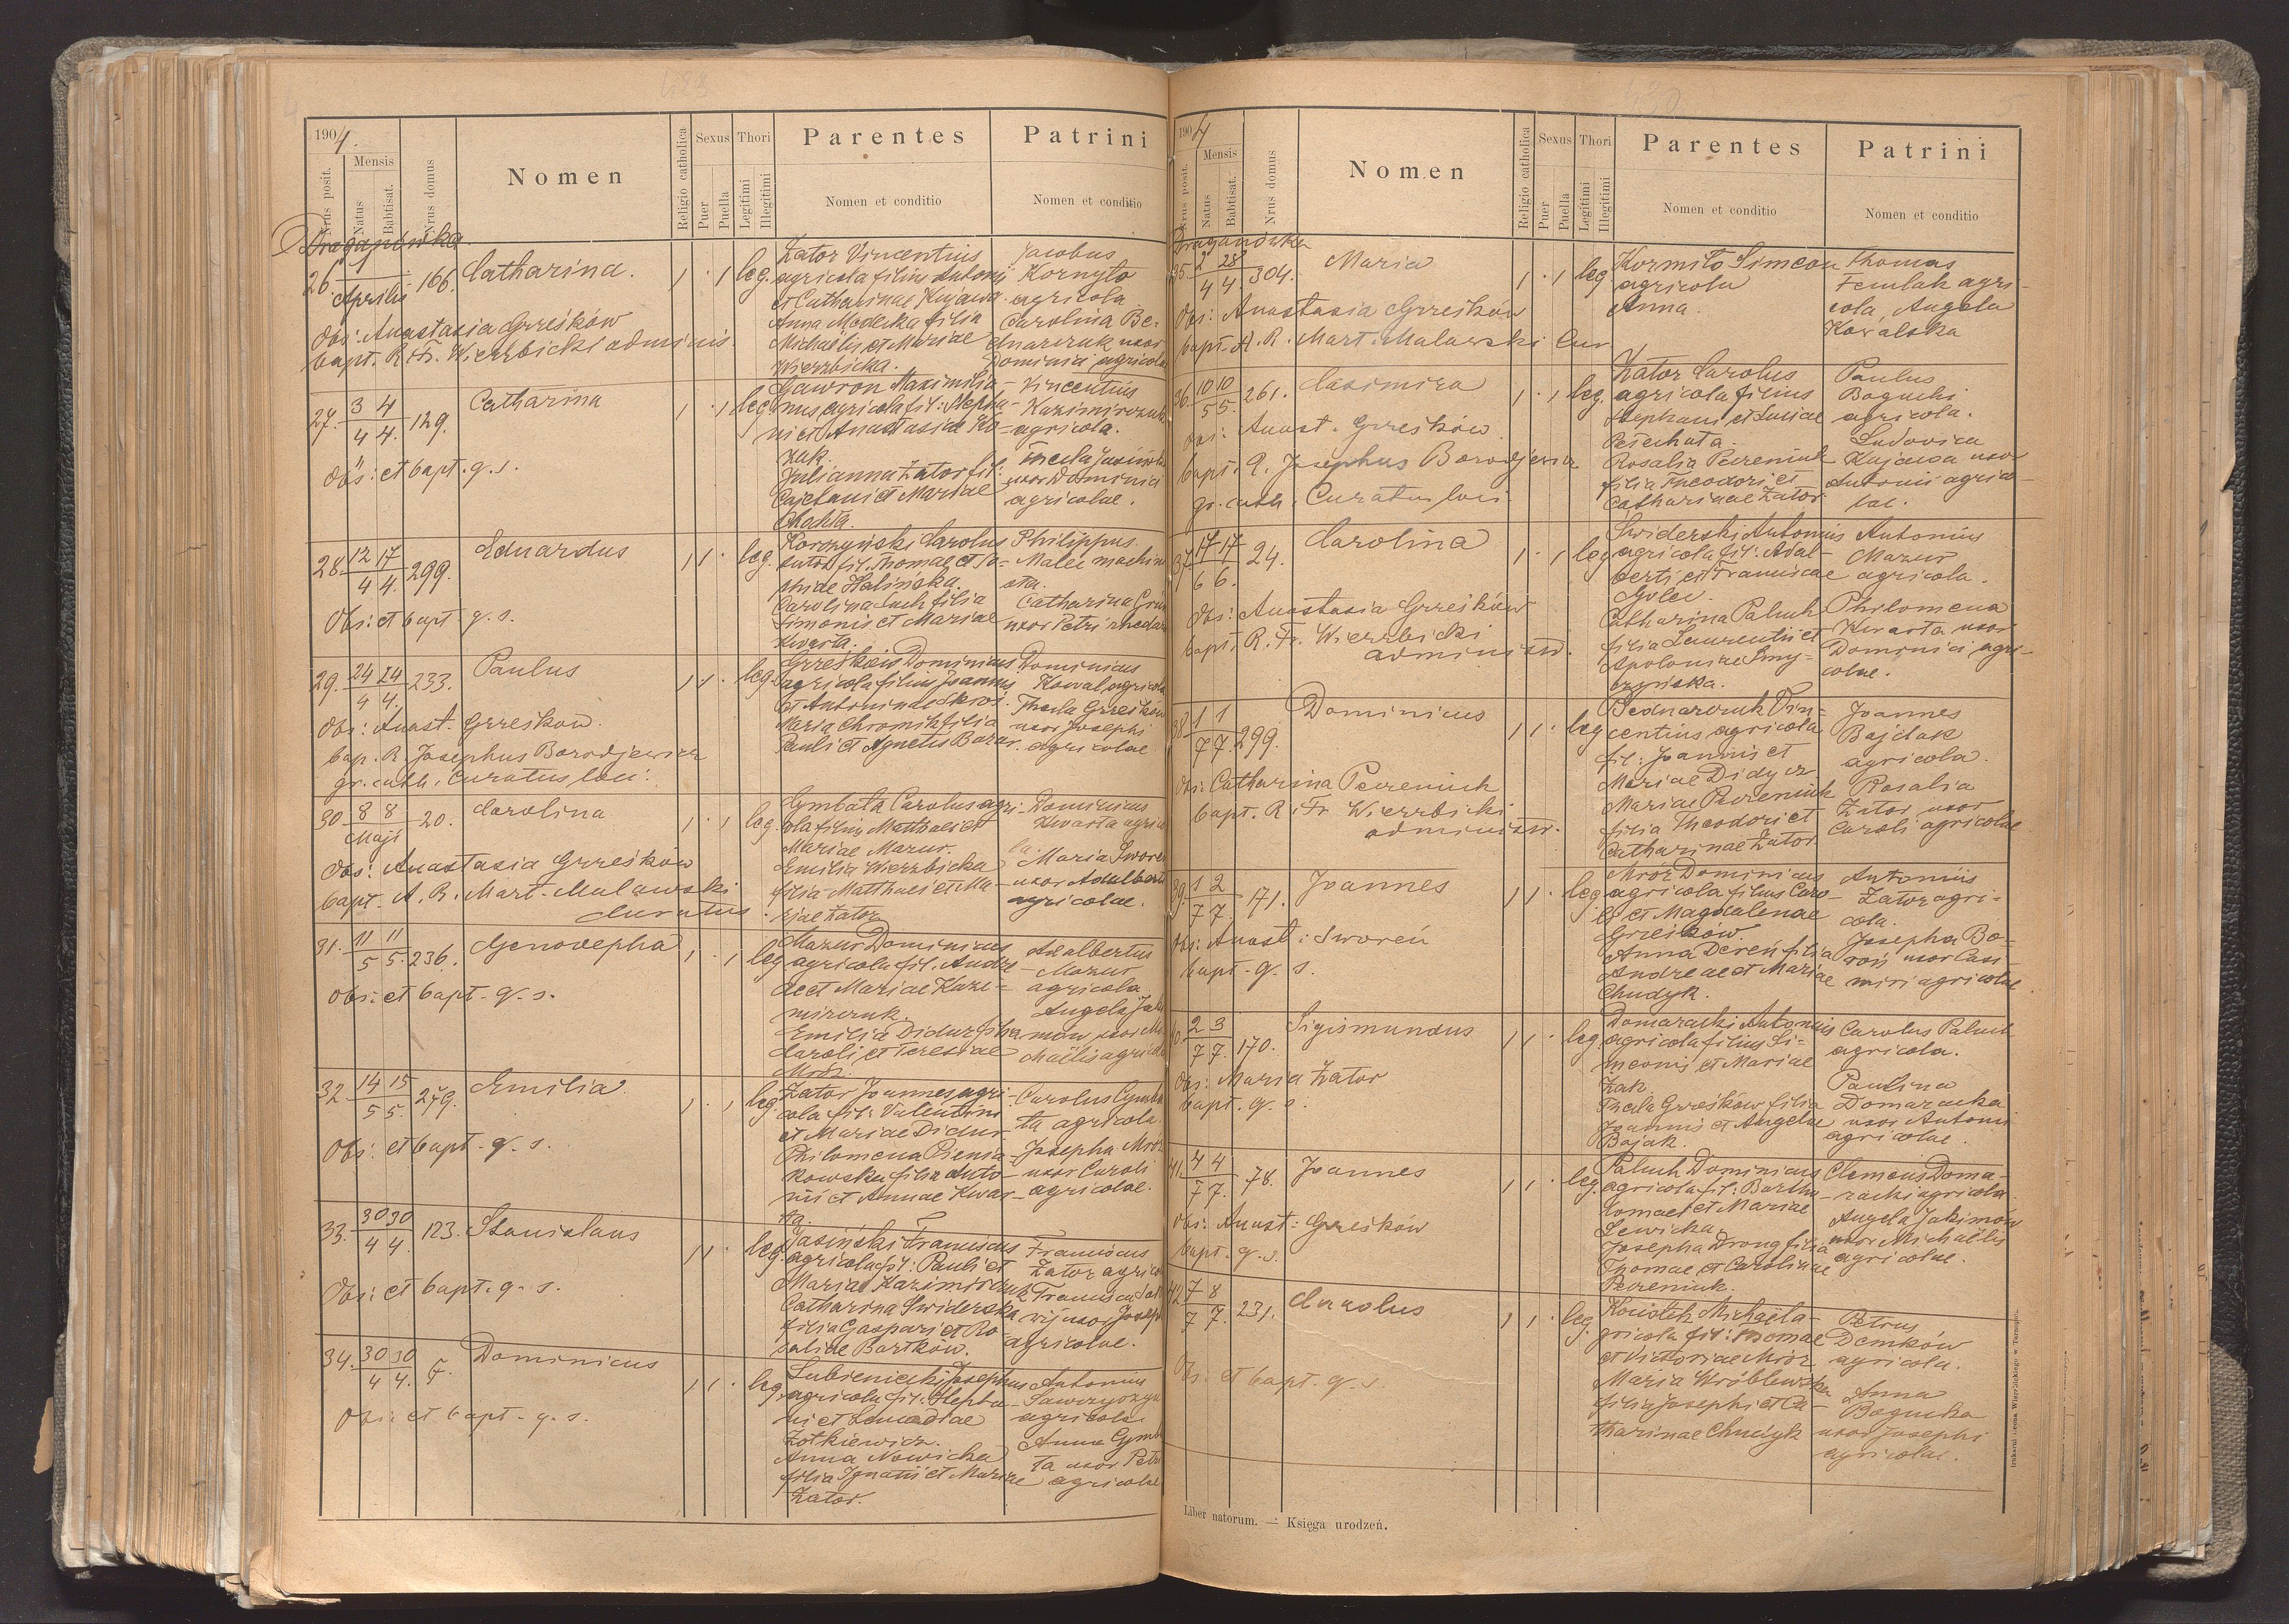 1904.
Nrus posit.
Mensis
Natus
Babtisat.
Nrus domus
Nomen
Religio catholica
Sexus
Puer
Puella
Thori
Legitimi
Illegitimi
Parentes
Nomen et conditio
Patrini
Nomen et conditio
Draganówka
26. Aprilis 166. Catharina. 1 · 1 leg.
Zator Vincentius
agricola filius Antonij
et Catharinae Kujawa.
Anna Modecka filia
Michaelis et Mariae
Wierzbicka.
Jacobus
Kornyto
agricola
Carolina Be-
dnarczuk uxor
Dominici agricola
Obs: Anastasia Grześków
bapt. R. Fr. Wierzbicki adminis.
27. 3 4 / 4 4. 129. Catharina 1 · 1 leg.
Gawron Maximilia-
nus agricola fil: Stepha-
ni et Anastasiae Ko-
zak.
Julianna Zator fil:
Cajetani et Mariae
Vincentius
Kazimirczuk
agricola.
Thecla Jasińska
uxor Dominici
agricolae.
obs: et bapt. q. s.
28. 12 17 / 4 4. 299. Eduardus 1 1 · leg.
Korczyński Carolus
sutor fil. Thomae et
Halińska.
Carolina Such filia
Simonis et Mariae
Kwarta.
Philippus
Malec machini
sta.
Catharina
uxor Petri
Obs: et bapt. q. s.
29. 24 24 / 4 4. 233. Paulus 1 1 · leg.
Grześków Dominicus
agricola filius Joannis
et Antoninae
Maria Chromik filia
Pauli et Agnetis Bazar.
Dominicus
Kowal agricola
Thecla Grześków
uxor Josephi
agricolae.
Obs: Anast. Grześków.
bap. R. Josephus Borodjewicz
gr. cath. Curatus loci.
30. 8 8 / Maji 20. Carolina 1 · 1 leg.
Cymbala Carolus agri-
cola filius Matthaei et
Mariae Mazur.
Emilia Wierzbicka
filia Matthaei et Ma-
riae Zator
Dominicus
Kwarta agrico
la.
Maria Sworeń
uxor Adalberti
agricolae.
Obs: Anastasia Grześków
bapt. A. R. Mart. Malawski
Curatus
31. 11 11 / 5 5. 236. Genovepha 1 · 1 leg
Mazur Dominicus
agricola fil. Andre-
ae et Mariae Kazi-
mirczuk.
Emilia Didur filia
Caroli et Teresiae
Mróz.
Adalbertus
Mazur
agricola
Angela Jaki
mow uxor Mi
chaëlis agricolae
Obs: et bapt. q. s.
32. 14 15 / 5 5. 279. Emilia 1 · 1 leg
Zator Joannes agri-
cola fil: Valentini
et Mariae Didur.
Philomena Pienia-
kowska filia Anto-
nii et Annae Kwar-
ta.
Carolus Cymba
ta agricola
Josepha Mróz
uxor Caroli
agricolae.
Obs: et bapt. q. s.
33. 30 30 / 4 4. 123. Stanislaus 1 1 · leg.
Jasiński Franciscus
agricola fil: Pauli et
Mariae Kazimirczuk
Catharina Swiderska
filia Gaspari et Ro-
saliae Bartków.
Franciscus
Zator agricola
Francisca
uxor Joseph
agricolae.
Obs: et bapt. q. s.
34. 30 30 / 4 4. 7. Dominicus 1 1 · leg.
Lubieniecki Josephus
agricola fil: Stepha-
ni et Leucadiae
Żołkiewicz.
Anna Nowicka
filia Ignatii et Mariae
Zator.
Antonius
agricola
Anna Cymb
ta uxor Petri
agricolae
Obs: et bapt. q. s.
1904
Nrus posit.
Mensis
Natus
Babtisat.
Nrus domus
Nomen
Religio catholica
Sexus
Puer
Puella
Thori
Legitimi
Illegitimi
Parentes
Nomen et conditio
Patrini
Nomen et conditio
Draganówka
35. 2 28 / 4 4. 304. Maria 1 · 1 leg
Kormiło Simeon
agricola
Anna.
Thomas
Femlak agri-
cola, Angela
Kowalska
Obs: Anastasia Grześków
bapt. A. R. Mart. Malawski Cur.
36. 10 10 / 5 5. 261. Casimira 1 · 1 leg.
Zator Carolus
agricola filius
Stephani et Luciae
Piechota.
Rosalia Pereniuk
filia Theodori et
Catharinae Zator
Paulus
Bogucki
agricola.
Ludovica
Kujawa uxor
Antonii agrico-
lae.
obs: Anast. Grześków.
bapt. R. Josephus Borodjewicz
gr. cath. Curatus loci
37. 17 17 / 6 6. 24. Carolina 1 · 1 leg
Swiderski Antonius
agricola fil: Adal-
berti et Franciscae
Golec.
Catharina Paluch
filia Laurentii et
Apoloniae Smy-
czyńska.
Antonius
Mazur
agricola.
Philomena
Kwarta uxor
Dominici agri-
colae.
Obs: Anastasia Grześków
bapt. R. Fr. Wierzbicki
administr.
38. 1 1 / 7 7. 299. Dominicus 1 1 · leg
Bednarczuk Vin-
centius agricola
fil: Joannis et
Mariae Didycz
Mariae Pereniuk
filia Theodori et
Catharinae Zator
Joannes
Bajdak
agricola.
Rosalia
Zator uxor
Caroli agricolae
Obs: Catharina Pereniuk
bapt. R. Fr. Wierzbicki
administr.
39. 1 2 / 7 7. 171. Joannes 1 1 · leg
Mróz Dominicus
agricola filius Caro-
li et Magdalenae
Grześków.
Anna Dereń filia
Andreae et Mariae
Chudyk.
Antonius
Zator agri-
cola.
Josepha Bo-
roń uxor Casi-
miri agricolae
Obs: Anast: Sworeń
bapt. q. s.
40. 2 3 / 7 7. 170. Sigismundus 1 1 · leg.
Domaracki Antonius
agricola filius Si-
meonis et Mariae
Żak.
Thecla Grześków filia
Joannis et Angelae
Bajak.
Carolus Paluch
agricola.
Paulina
Domaracka
uxor Antonii
agricolae.
Obs: Maria Zator
bapt. q. s.
41. 4 4 / 7 7. 78. Joannes 1 1 · leg.
Paluch Dominicus
agricola fil: Bartho-
lomaei et Mariae
Lewicka.
Josepha Drong filia
Thomae et Carolinae
Pereniuk.
Clemens Doma-
racki agricola
Angela Jakimów
uxor Michaëlis
agricolae.
Obs: Anast: Grześków
bapt. q. s.
42. 7 8 / 7 7. 231. Carolus 1 1 · leg.
Koustek Michaël a-
gricola fil: Thomae
et Victoriae Mróz
Maria Wróblewska
filia Josephi et Ca-
tharinae Chudyk
Petrus
Demków
agricola.
Anna
Bogucka
uxor Josephi
agricolae.
Obs: et bapt. q. s.
Liber natorum. — Księga urodzeń.